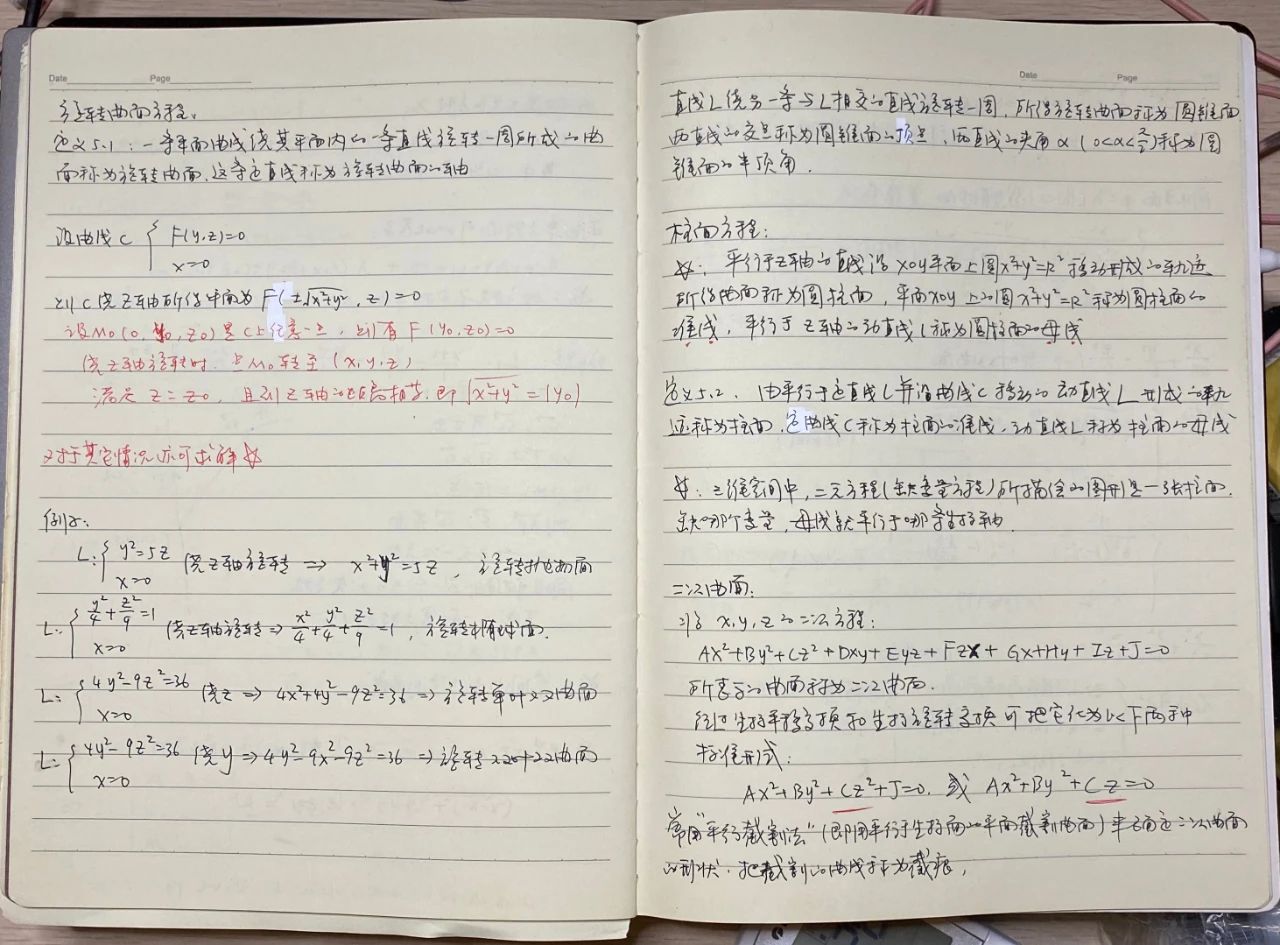 Date Page
旋转曲面方程.
定义5.1:一条平面曲线绕其平面内的一条直线旋转一周所成的曲
面称为旋转曲面.这条定直线称为旋转曲面的轴
设曲线C { F(y,z)=0
x=0
则C绕Z轴所得曲面为 F(±√x²+y², z)=0
设M₀(0, y₀, z₀)是C上任意一点,则有 F(y₀,z₀)=0
绕Z轴旋转时.点M₀转至(x,y,z)
满足 z=z₀, 且到Z轴的距离相等.即√x²+y²=|y₀|
对于其它情况亦可求解☆
例子:
L:{ y²=5z
x=0 绕Z轴旋转 ⇒ x²+y²=5z, 旋转抛物面
L:{ y²/4+z²/9=1
x=0 绕Z轴旋转⇒ x²/4+y²/4+z²/9=1, 旋转椭球面.
L:{ 4y²-9z²=36
x=0 绕z ⇒ 4x²+4y²-9z²=36 ⇒旋转单叶双曲面
L:{ 4y²-9z²=36
x=0 绕y ⇒ 4y²-9x²-9z²=36 ⇒旋转双叶双曲面
Date Page
直线L绕另一条与L相交的直线旋转一周,所得旋转曲面称为圆锥面
两直线的交点称为圆锥面的顶点,两直线的夹角α(0<α<π/2)称为圆
锥面的半顶角.
柱面方程:
☆: 平行于Z轴的直线沿xoy平面上圆x²+y²=R²移动形成的轨迹
所得曲面称为圆柱面,平面xoy上的圆x²+y²=R²称为圆柱面的
准线,平行于Z轴的动直线l称为圆柱面的母线
定义5.2. 由平行于定直线L并沿曲线C移动的动直线L形成的轨
迹称为柱面.定曲线C称为柱面的准线.动直线L称为柱面的母线
☆:三维空间中,二元方程(缺变量方程)所描绘的图形是一张柱面.
缺哪个变量,母线就平行于哪条坐标轴.
二次曲面:
以x,y,z的二次方程:
Ax²+By²+Cz²+Dxy+Eyz+Fzx+Gx+Hy+Iz+J=0
所表示的曲面称为二次曲面.
经过坐标平移变换和坐标旋转变换可把它化为以下两种
标准形式:
Ax²+By²+Cz²+J=0. 或 Ax²+By²+Cz=0
常用"平行截割法"(即用平行于坐标面的平面截割曲面)来确定二次曲面
的形状.把截割的曲线称为截痕,